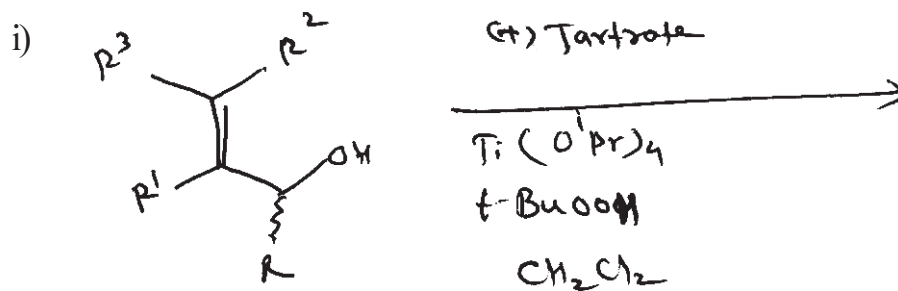 i)
R³
R²
OH
R¹
R
(+) Tartrate
Ti(OⁱPr)₄
t-BuOOH
CH₂Cl₂